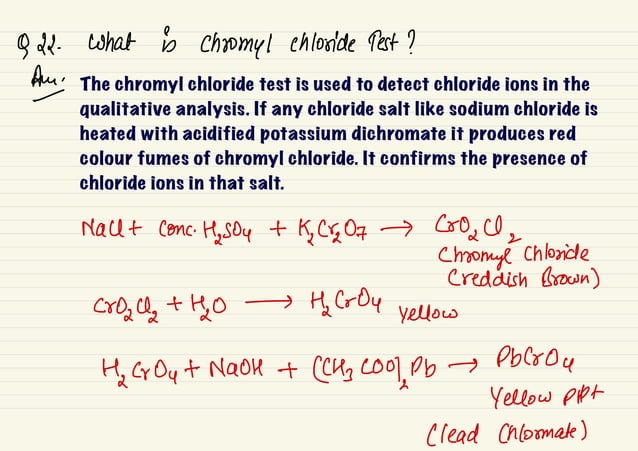 Q 22. What is Chromyl Chloride Test ?
Ans. The chromyl chloride test is used to detect chloride ions in the
qualitative analysis. If any chloride salt like sodium chloride is
heated with acidified potassium dichromate it produces red
colour fumes of chromyl chloride. It confirms the presence of
chloride ions in that salt.
NaCl + Conc. H₂SO₄ + K₂Cr₂O₇ → CrO₂Cl₂
Chromyl Chloride
(reddish Brown)
CrO₂Cl₂ + H₂O → H₂CrO₄ Yellow
H₂CrO₄ + NaOH + (CH₃COO)₂Pb → PbCrO₄
Yellow PPt
(lead Chlormate)